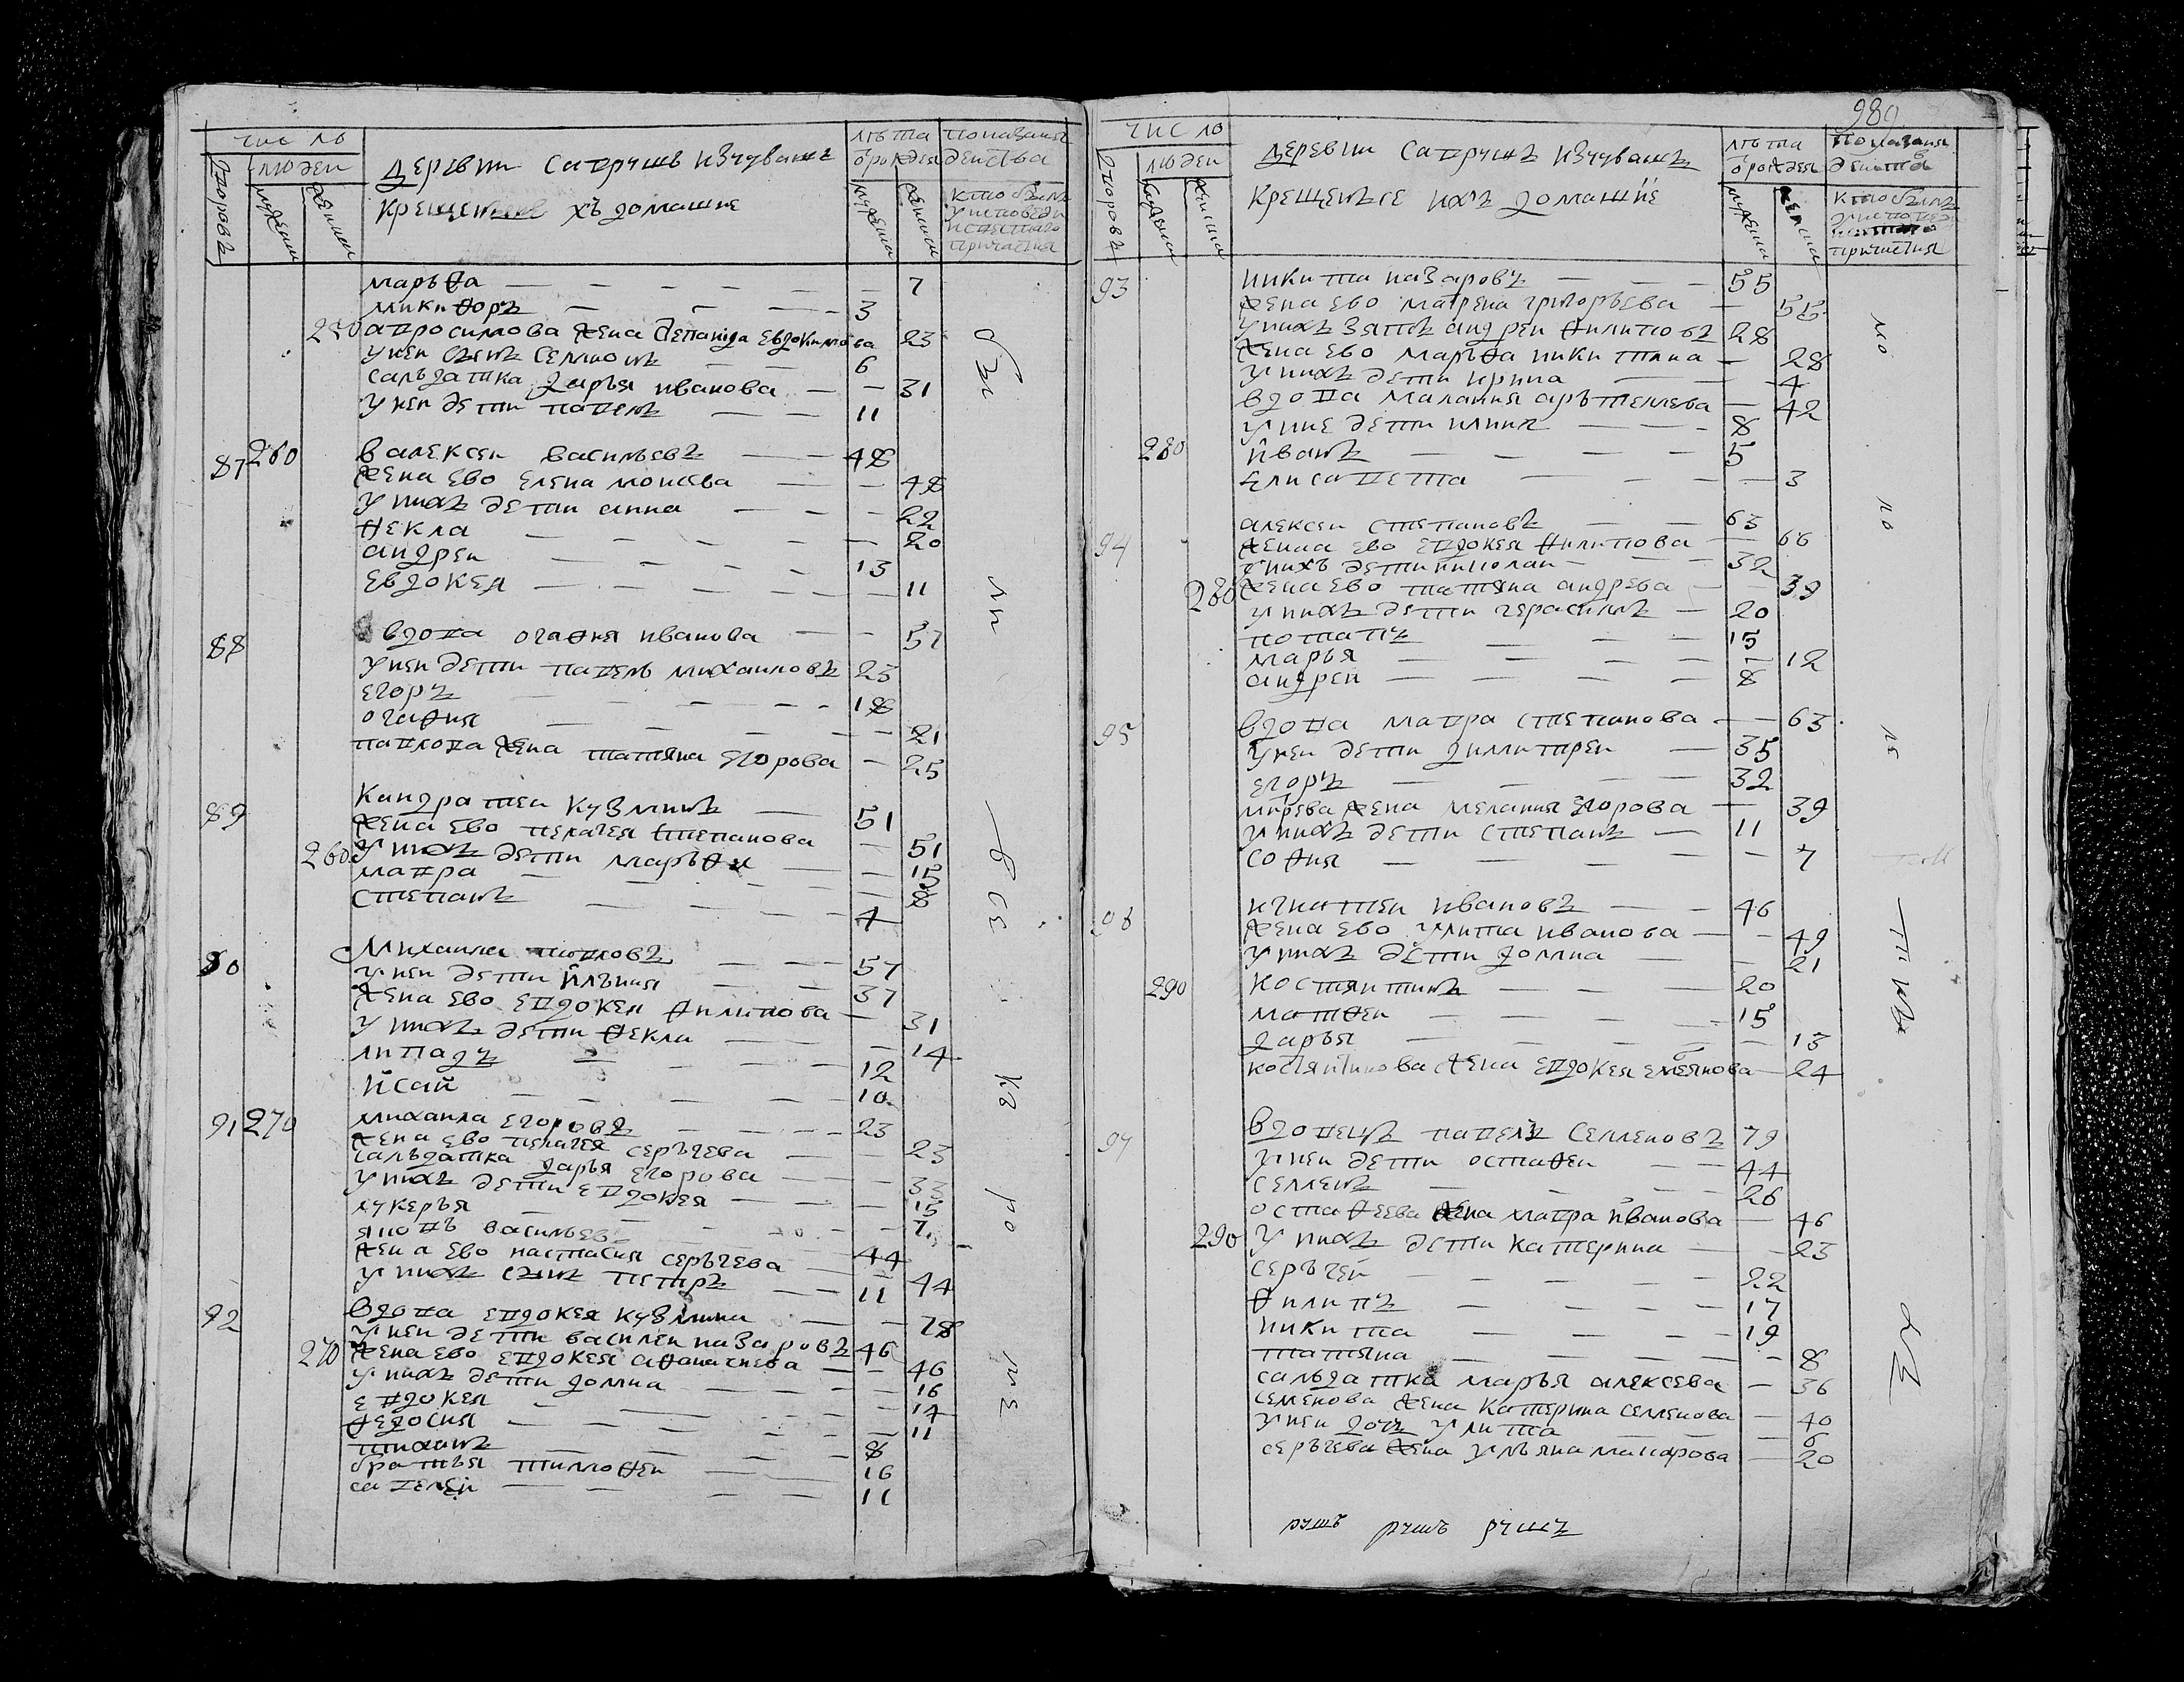 число
людеи
дворовъ
мужеска
женска
деревни Сапрушъ изчувашъ
крещеные ихъ домашне
лѣта
ѿрождея
мужеска
женска
показаня
деиства
кто былъ
уисповеди
исвятаго
причастия
марьѳа 7
микиѳоръ 3
250 апросимова жена степанида евдокимова 23
унеи сынъ семионъ 6
салъдатка дарья иванова 31
унеи дети павелъ 11
87 260 алексеи василъевъ 48
жена ево елена моисева 48
унихъ дети анна 22
ѳекла 20
андреи 13
евдокея 11
88 вдова огаѳия иванова 57
унеи дети павелъ михаиловъ 23
егоръ 18
огаѳия 21
павлова жена татяна егорова 25
89 кандратеи кузминъ 51
жена ево пелагея степанова 51
260 унихъ дети маръѳа 15
мавра 8
степанъ 4
90 михаила павловъ 57
унеи дети илъния 37
жена ево евдокея ѳилипова 31
унихъ дети ѳекла 14
липадъ 12
исаи 10
91 270 михаила егоровъ 23
жена ево пелагея серъгева 23
салъдатка даръя егорова 33
унихъ дети евдокея 15
лукеръя 7
яковъ василъевъ 44
жена ево настасия серъгева 44
унихъ сынъ петръ 11
92 вдова евдокея кузмина 78
унеи дети василеи назаровъ 46
270 жена ево евдокея аѳонасиева 46
унихъ дети домна 16
евдокея 14
ѳедосия 11
тиханъ 8
братъя тимоѳеи 16
савелеи 11
бы
ли
все
кз
ро
мѣ
989
число
людеи
дворовъ
мужеска
женска
деревни Сапрушъ изчувашъ
крещеные ихъ домашние
лѣта
ѿрождея
мужеска
женска
показаня
деиства
кто былъ
уисповеди
причастия
93 никита назаровъ 55
жена ево матрена григоръева 55
унихъ зятъ андреи ѳилиповъ 28
жена ево маръѳа никитина 28
унихъ дети ирина 4
вдова малания арътемева 42
уние дети илия 8
280 иванъ 5
елисавета 3
94 алексеи степановъ 63
жена ево евдокея ѳилипова 66
унихъ дети николаи 32
280 жена ево татяна андрева 39
унихъ дети герасимъ 20
потапъ 15
марья 12
андреи 8
95 вдова мавра степанова 63
унеи дети димитреи 35
егоръ 32
митрева жена мелания егорова 39
унихъ дети степанъ 11
соѳия 7
96 игнатеи ивановъ 46
жена ево улита иванова 49
унихъ дети домна 21
290 костянтинъ 20
матѳеи 15
даръя 13
костянтинова жена евдокея емеянова 24
97 вдовецъ павелъ семеновъ 79
унеи дети остаѳеи 44
семенъ 26
остаѳеева жена мавра иванова 46
290 унихъ дети катерина 23
серъгеи 22
ѳилипъ 17
никита 19
татяна 8
салъдатка маръя алексева 36
семенова жена катерина семенова 40
унеи дочъ улита 6
серъгева жена улъяна макарова 20
мо
ло
лѣ
рушъ рушъ рушъ